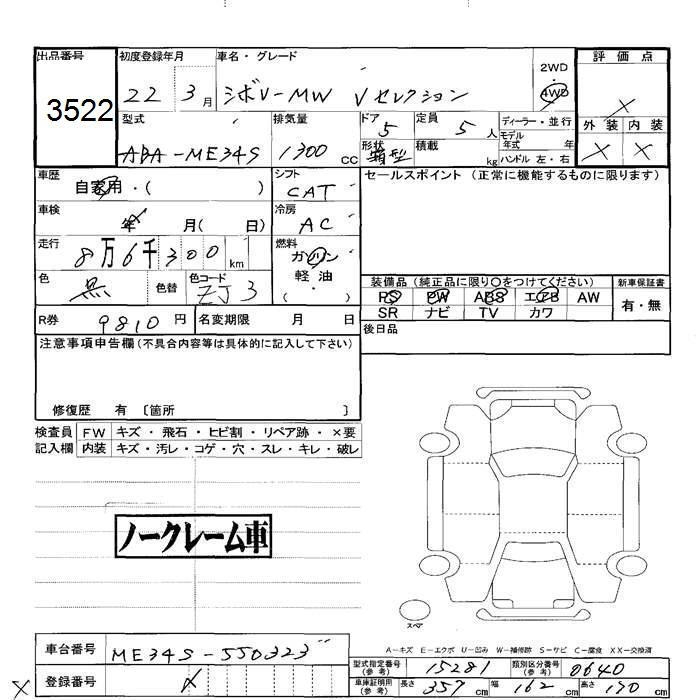 出品番号 初度登録年月 車名・グレード 2WD 評価点
3522 22 3月 シボレーMW Vセレクション 4WD ×
型式 排気量 ドア 5 定員 5人 ディーラー・並行 外装 内装
ABA-ME34S 1300cc 形状 箱型 積載 kg モデル年式 年 × ×
ハンドル 左・右
車歴 自家用・( ) シフト CAT セールスポイント (正常に機能するものに限ります)
車検 年 月( 日) 冷房 AC
走行 8万6千300km 燃料 ガソリン
軽油
( ・ )
色 黒 色替 色コード ZJ3 装備品 (純正品に限り○をつけてください) 新車保証書
PS PW ABS エアB AW 有・無
SR ナビ TV カワ
R券 9810円 名変期限 月 日 後日品
注意事項申告欄(不具合内容等は具体的に記入して下さい)
修復歴 有 〔箇所 〕
検査員 FW キズ・飛石・ヒビ割・リペア跡・×要
記入欄 内装 キズ・汚レ・コゲ・穴・スレ・キレ・破レ
ノークレーム車
スペア
A-キズ E-エクボ U-凹み W-補修跡 S-サビ C-腐食 XX-交換済
車台番号 ME34S-550323 型式指定番号(参考) 15281 類別区分番号(参考) 0640
× 登録番号 車庫証明用(参考) 長さ 357cm 幅 162cm 高さ 170cm